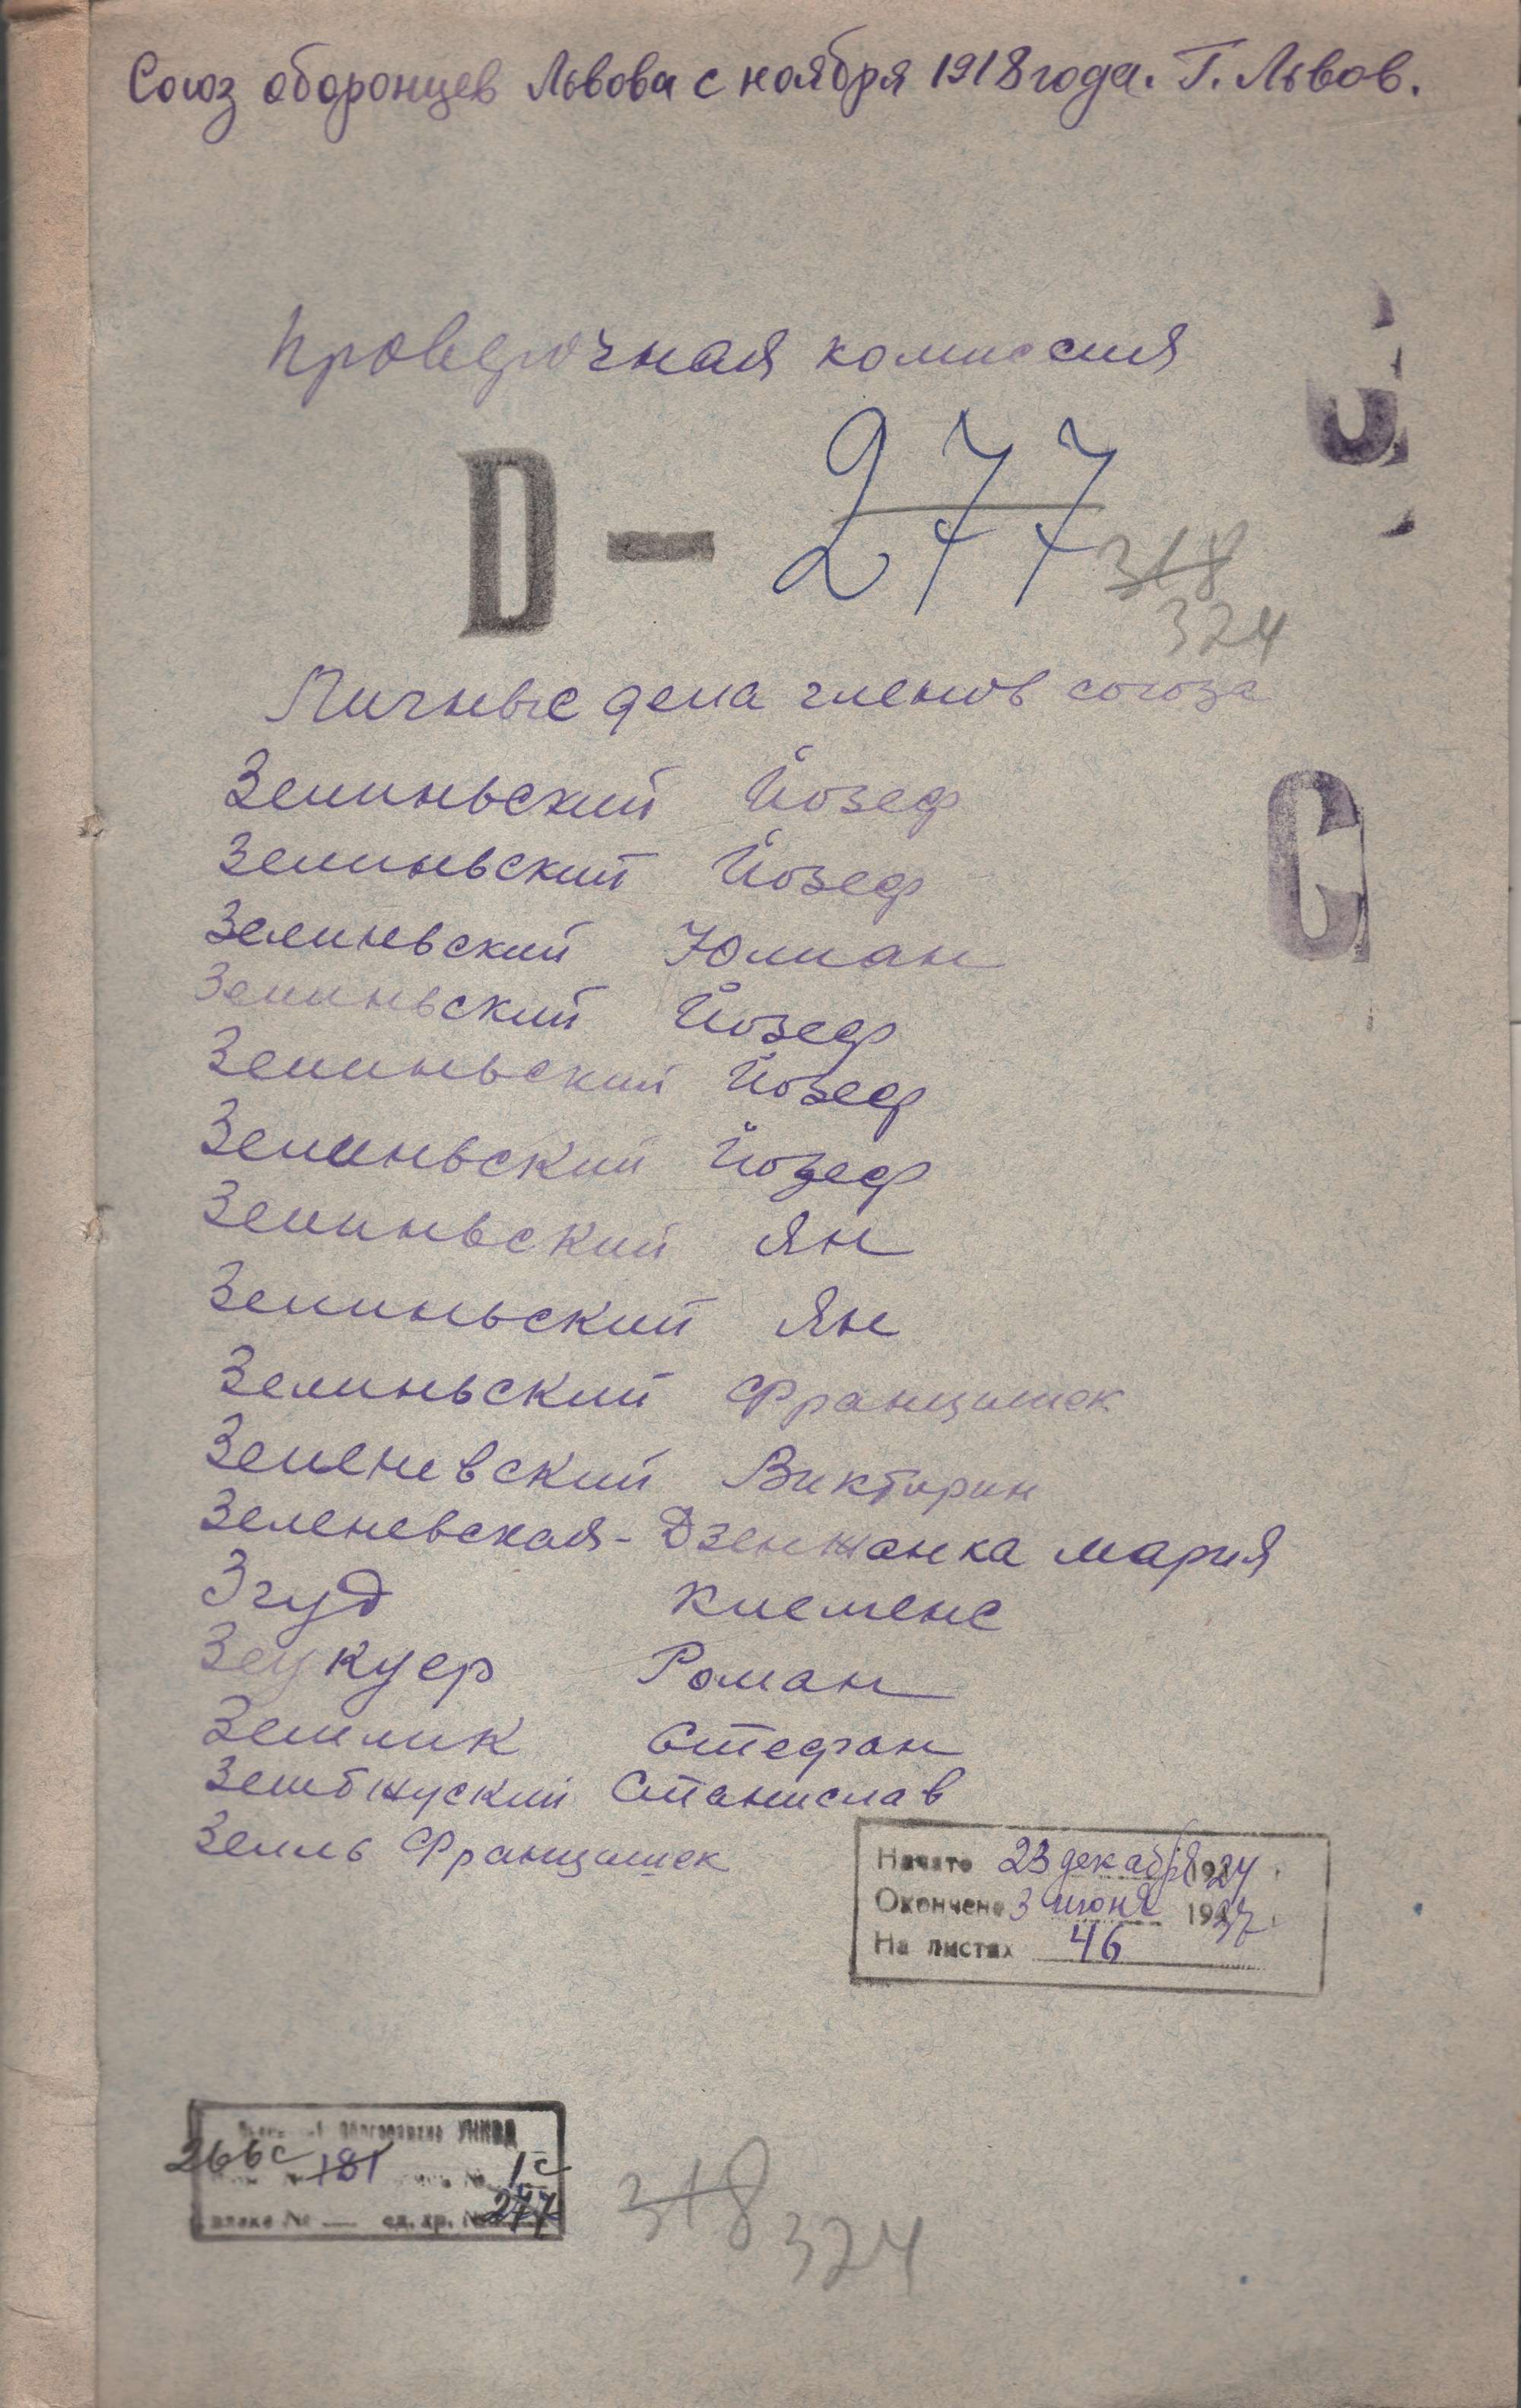 Союз оборонцев Львова с ноября 1918 года. Г. Львов.
Проверочная комиссия
D - 277
318
324
Личные дела членов союза
Зелиньский Йозеф
Зелиньский Йозеф
Зелиньский Юлиан
Зелиньский Йозеф
Зелиньский Йозеф
Зелиньский Йозеф
Зелиньский Ян
Зелиньский Ян
Зелиньский Францишек
Зеленевский Викторин
Зеленевская-Дзенжанка Мария
Згуд Клеменс
Роман
Стефан
Станислав
Зелль Францишек
C
Начато 23 декабря 1924
Окончено 3 июня 1937
На листах 46
УНКВД
266с 181 № 1с
№ — ед. хр. № 277
318 324